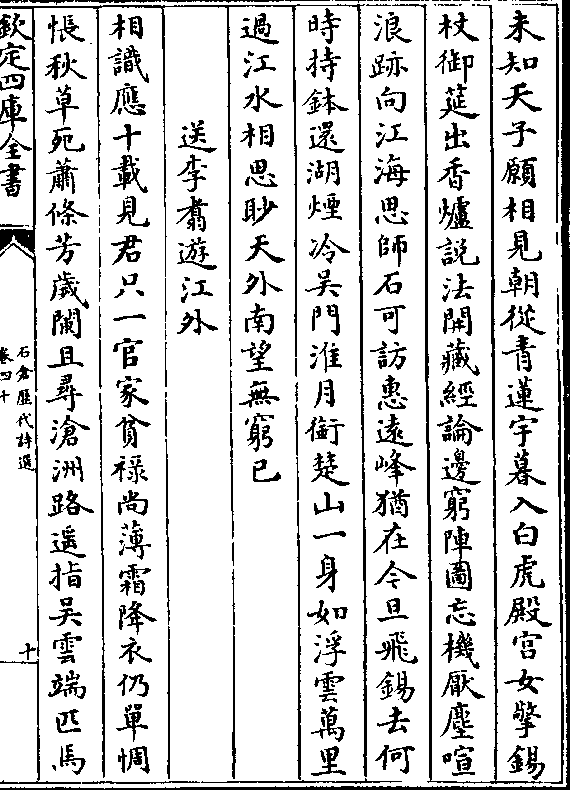 未知天子願相見朝從青蓮宇暮入白虎殿宫女擎錫
杖御筵出香爐説法開藏經論邊窮陣圖忘機厭塵喧
浪跡向江海思師石可訪惠遠峰猶在今旦飛錫去何
時持鉢還湖煙冷吳門淮月銜楚山一身如浮雲萬里
過江水相思眇天外南望無窮已
送李翥遊江外
相識應十載見君只一官家貧祿尚薄霜降衣仍單惆
悵秋草死蕭條芳歲闌且尋滄洲路遥指吳雲端匹馬
欽定四庫全書
石倉歷代詩選
卷四十
十